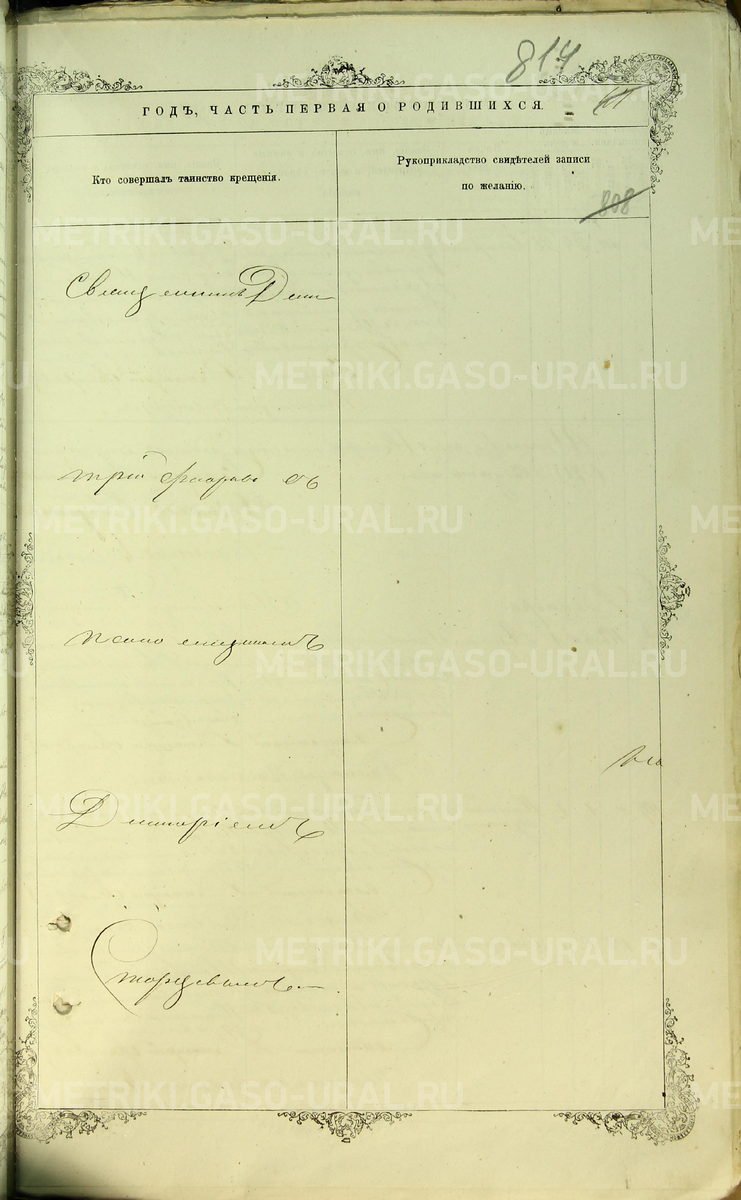 814
ГОДЪ, ЧАСТЬ ПЕРВАЯ О РОДИВШИХСЯ.
Кто совершалъ таинство крещенія.
Рукоприкладство свидѣтелей записи
по желанію.
808
Священникъ Дми
трій
псаломщикомъ
Димитріемъ
Сторцевымъ.
METRIKI.GASO-URAL.RU